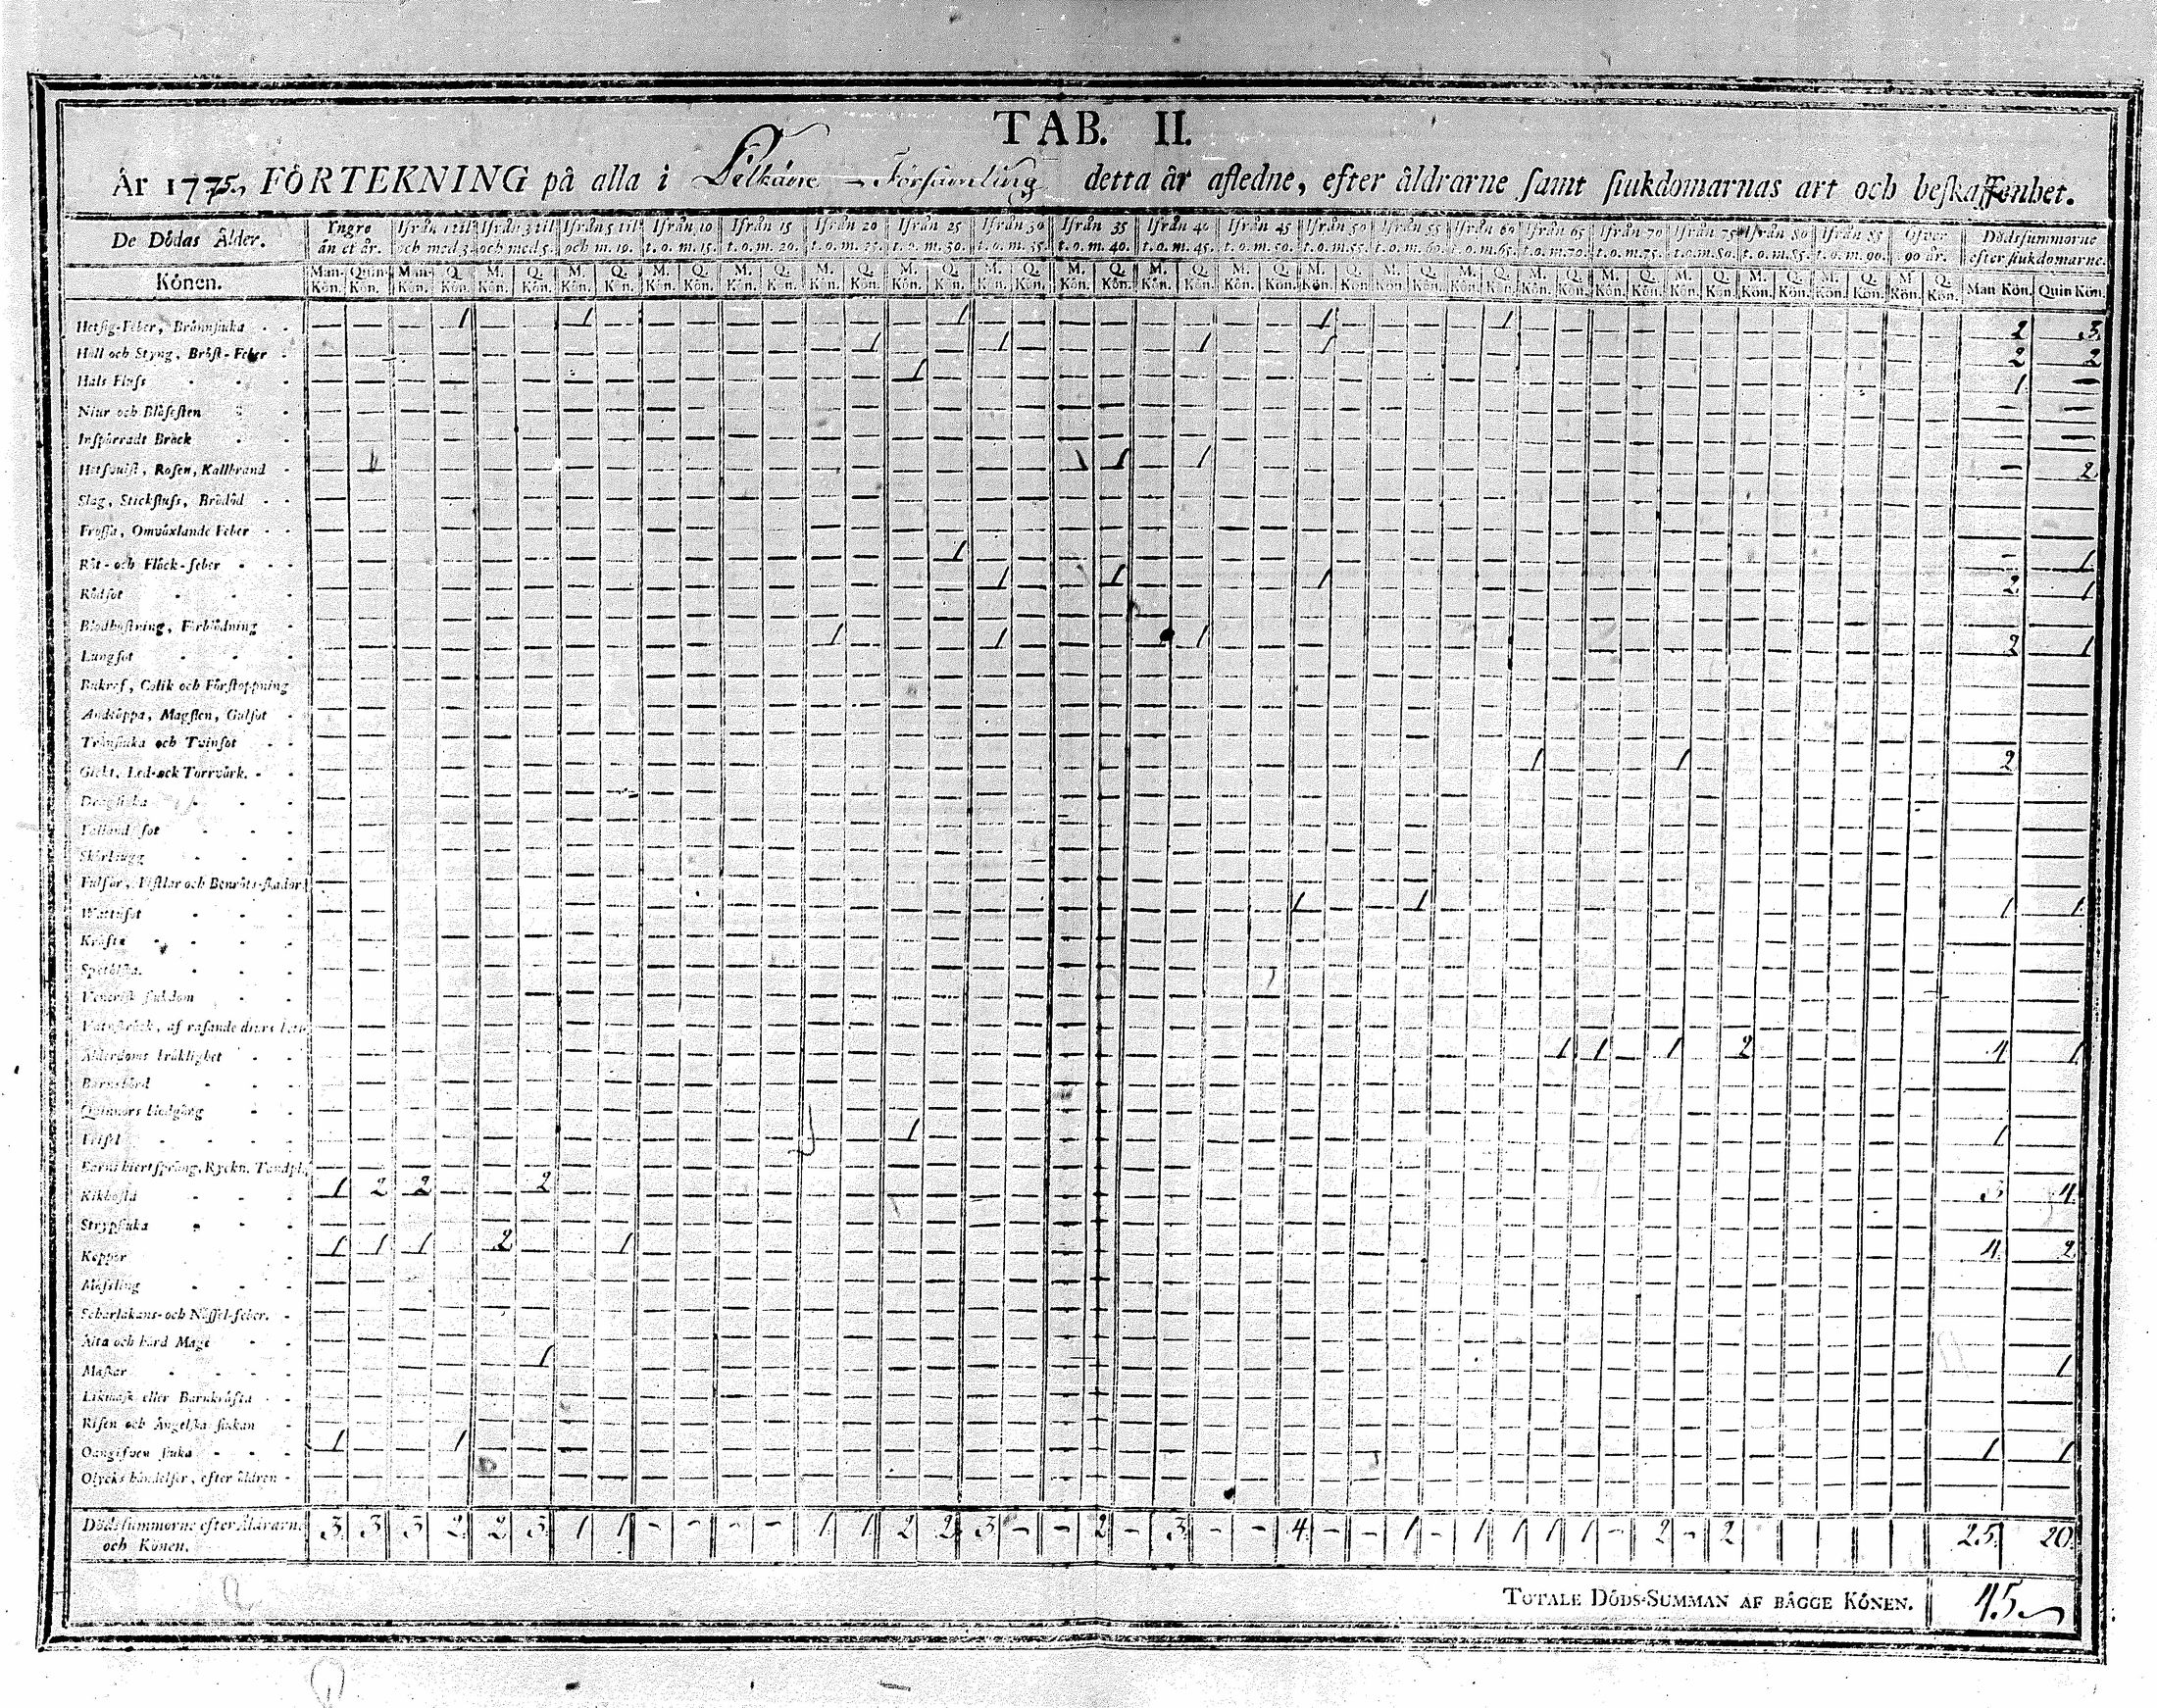 TAB. II.
År 1775, FÖRTEKNING på alla i Pelkäne Församling detta år afledne, efter åldrarne samt siukdomarnas art och beskaffenhet.
De Dödas Ålder. Yngre än et år. Ifrån 1 till och med 3. Ifrån 3 til och med 5. Ifrån 5 til och m. 10. Ifrån 10 t. o. m. 15. Ifrån 15 t. o. m. 20. Ifrån 20 t. o. m. 25. Ifrån 25 t. o. m. 30. Ifrån 30 t. o. m. 35. Ifrån 35 t. o. m. 40. Ifrån 40 t. o. m. 45. Ifrån 45 t. o. m. 50. Ifrån 50 t. o. m. 55. Ifrån 55 t. o. m. 60. Ifrån 60 t. o. m. 65. Ifrån 65 t. o. m. 70. Ifrån 70 t. o. m. 75. Ifrån 75 t. o. m. 80. Ifrån 80 t. o. m. 85. Ifrån 85 t. o. m. 90. Öfver 90 år. Dödssummorne efter siukdomarne.
Könen. Man-Kön. Quin-Kön. Man-Kön. Q. Kön. M. Kön. Q. Kön. M. Kön. Q. Kön. M. Kön. Q. Kön. M. Kön. Q. Kön. M. Kön. Q. Kön. M. Kön. Q. Kön. M. Kön. Q. Kön. M. Kön. Q. Kön. M. Kön. Q. Kön. M. Kön. Q. Kön. M. Kön. Q. Kön. M. Kön. Q. Kön. M. Kön. Q. Kön. M. Kön. Q. Kön. M. Kön. Q. Kön. M. Kön. Q. Kön. M. Kön. Q. Kön. M. Kön. Q. Kön. M. Kön. Q. Kön. Man Kön. Quin Kön.
Hetsig-Feber, Brännsiuka 1 1 1 1 1 2 3
Håll och Styng, Bröst-Feber 1 1 1 1 2 2
Hals Fluss 1 1 —
Niur och Blåsesten — —
Inspärradt Bråck — —
Hetsvulst, Rosen, Kallbrand 1 1 — 2
Slag, Stickfluss, Brådöd
Frossa, Omväxlande Feber
Röt- och Fläck-feber 1 — 1
Rödsot 1 1 1 2 1
Blodhostning, Förblödning
Lungsot 1 1 1 2 1
Bukref, Colik och Förstoppning
Andtäppa, Magsten, Gulsot
Trånsiuka och Tvinsot
Gickt, Led- ock Torrvärk. 1 1 2
Dragsiuka
Falland sot
Skörbiugg
Fulsår, Fistlar och Benröts-skador
Wattusot 1 1 1 1
Kräfta
Spetälska.
Venerisk siukdom
Vatuskräck, af rasande diurs bett
Ålderdoms bräklighet 1 1 1 2 4 1
Barnsbörd
Quinnors blodgång
Frisel 1 1
Barns hiertsprång, Ryckn. Tandpl.
Kikhosta 1 2 2 2 3 4
Strypsiuka
Koppor 1 1 1 2 1 4 2
Mässling
Scharlakans- och Nässel-feber.
Älta och hård Mage
Maskar 1 1
Likmask eller Barnkräfta
Risen och Ängelska siukan
Oangifven siuka 1 1 1 1
Olycks händelser, efter åldren
Dödssummorne efter Åldrarne 3 3 3 2 2 3 1 1 - - - - 1 1 2 2 3 - - 2 - 3 - - 4 - - 1 - 1 1 1 1 - 2 - 2 25 20
och Könen.
TOTALE DÖDS-SUMMAN AF BÅGGE KÖNEN. 45